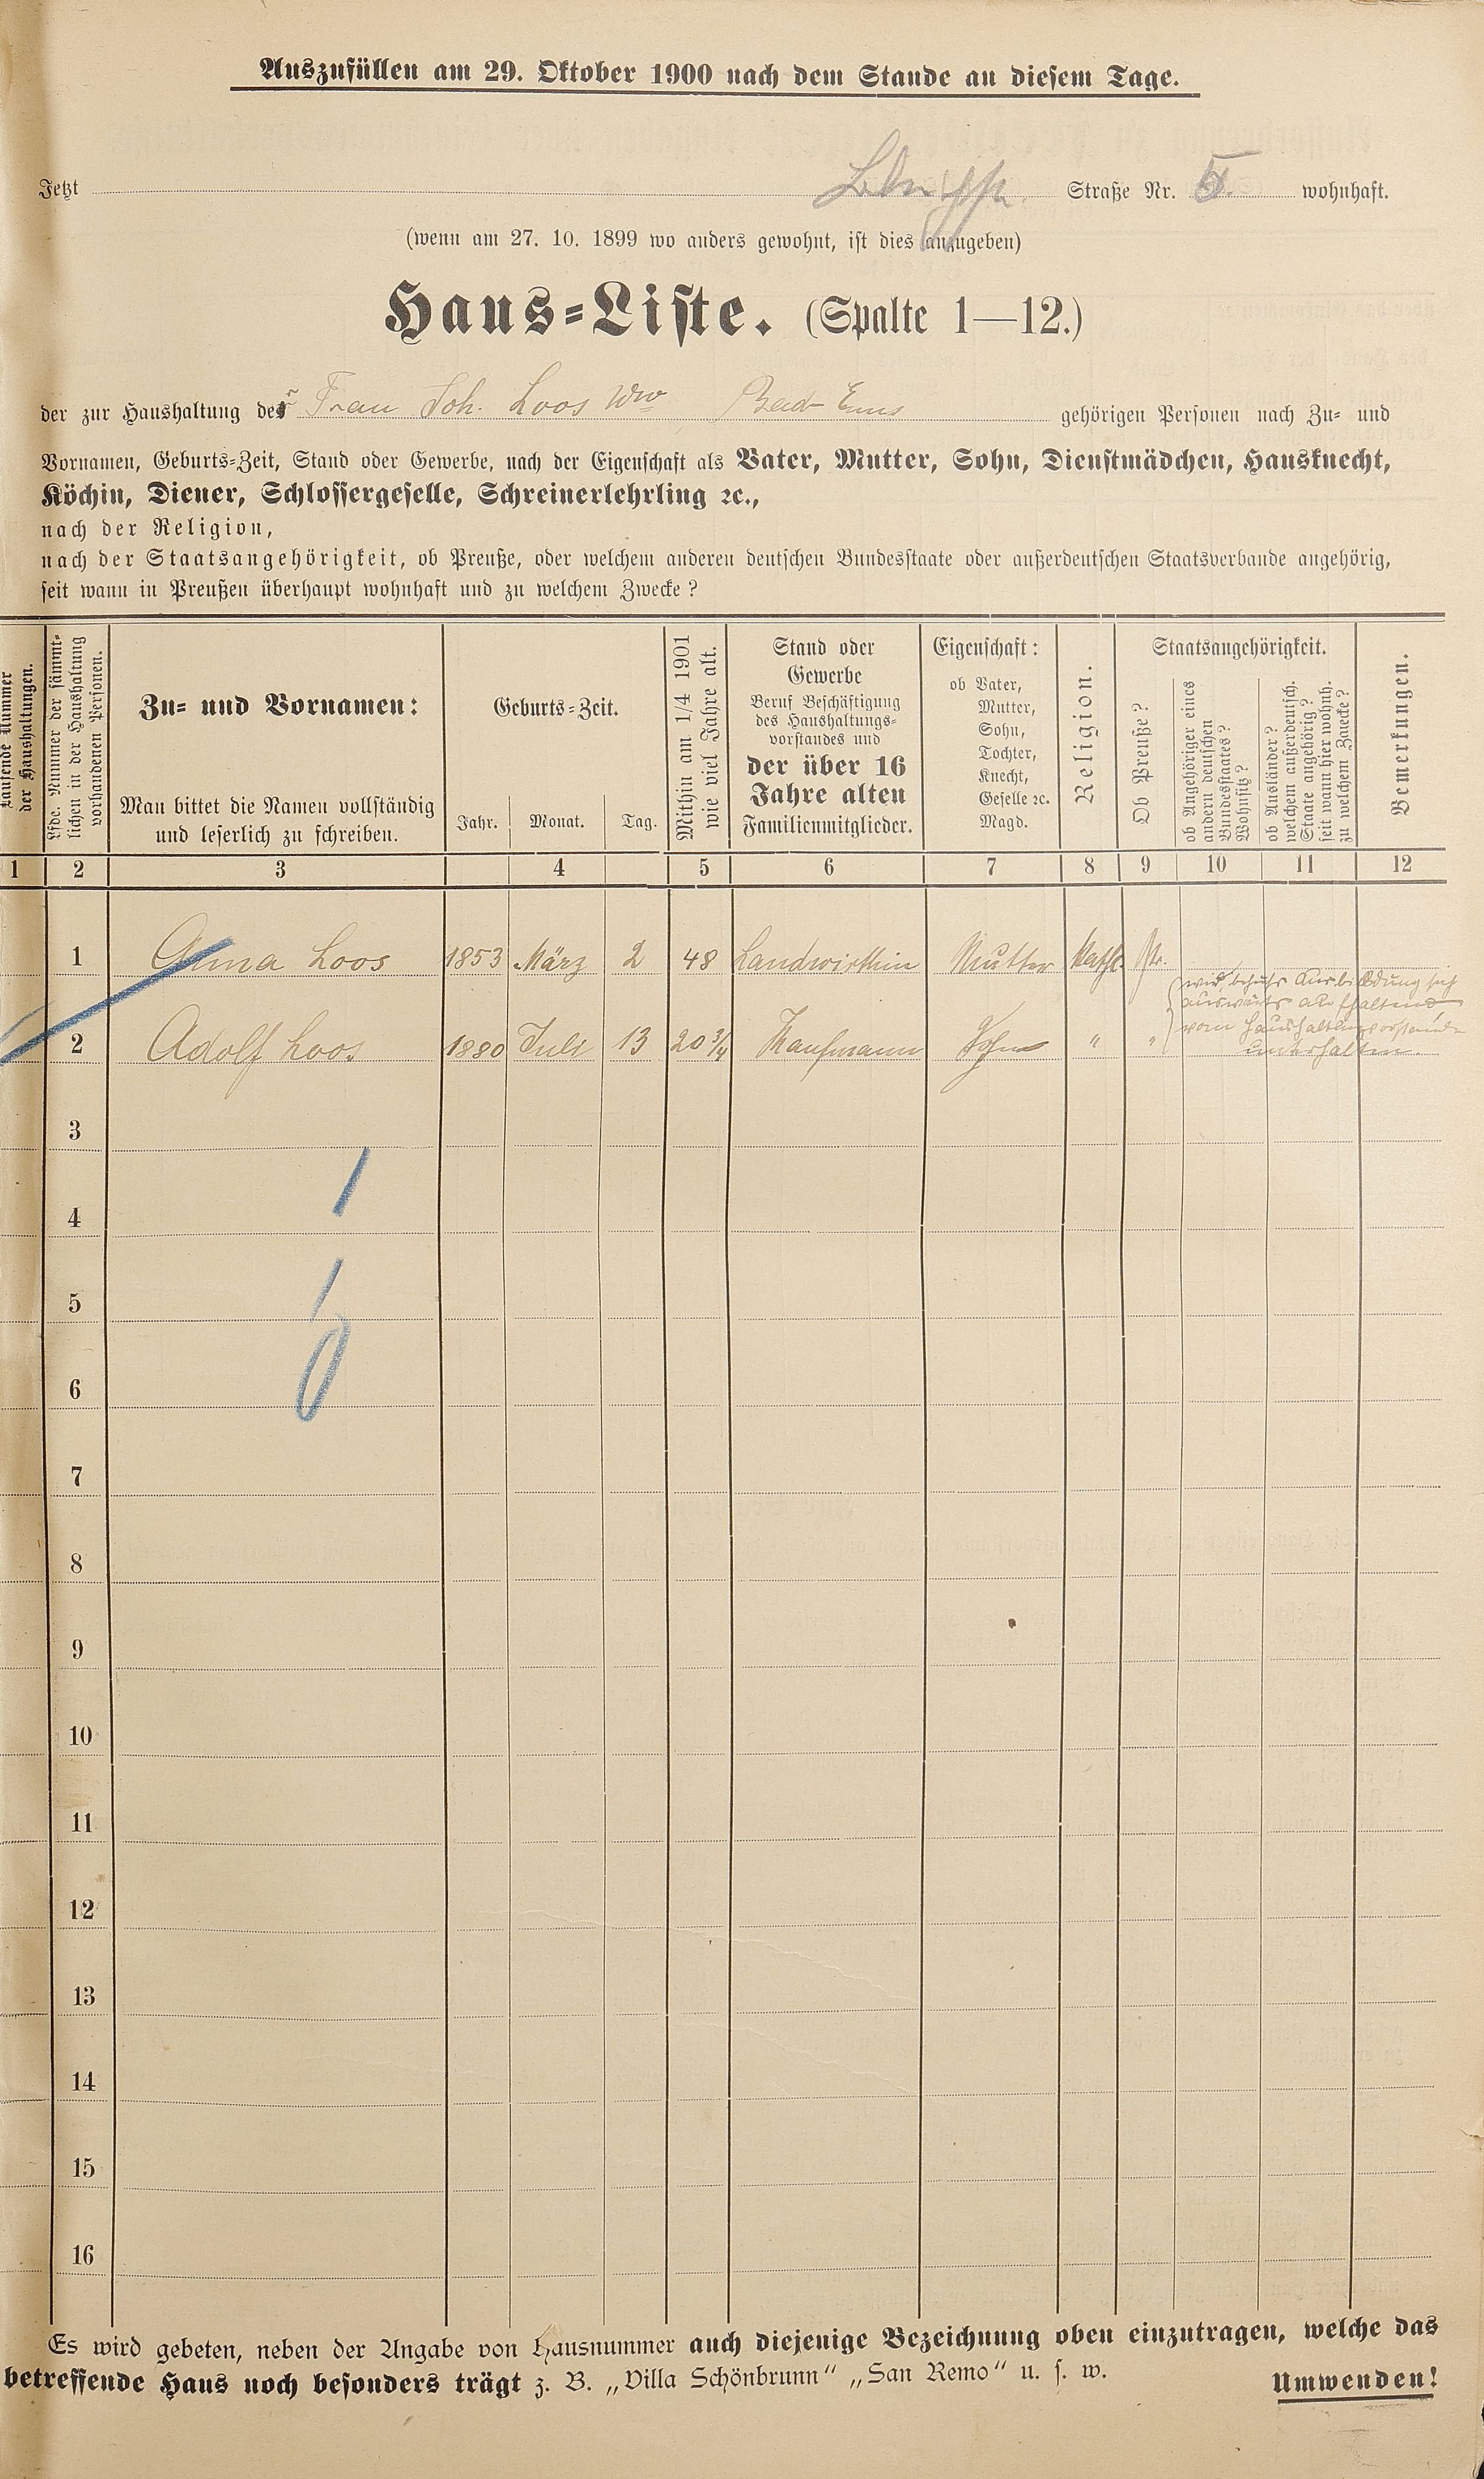 Auszufüllen am 29. Oktober 1900 nach dem Stande an diesem Tage.
Jetzt Straße Nr. 5. wohnhaft.
(wenn am 27. 10. 1899 wo anders gewohnt, ist dies anzugeben)
Haus-Liste. (Spalte 1—12.)
der zur Haushaltung der Frau Joh. Loos Ww Bad Ems gehörigen Personen nach Zu- und
Vornamen, Geburts-Zeit, Stand oder Gewerbe, nach der Eigenschaft als Vater, Mutter, Sohn, Dienstmädchen, Hausknecht,
Köchin, Diener, Schlossergeselle, Schreinerlehrling ꝛc.,
nach der Religion,
nach der Staatsangehörigkeit, ob Preuße, oder welchem anderen deutschen Bundesstaate oder außerdeutschen Staatsverbande angehörig,
seit wann in Preußen überhaupt wohnhaft und zu welchem Zwecke?
Laufende Nummer
der Haushaltungen.
Lfde. Nummer der sämmt-
lichen in der Haushaltung
vorhandenen Personen.
Zu- und Vornamen:
Man bittet die Namen vollständig
und leserlich zu schreiben.
Geburts-Zeit.
Jahr. Monat. Tag.
Mithin am 1/4 1901
wie viel Jahre alt.
Stand oder
Gewerbe
Beruf Beschäftigung
des Haushaltungs-
vorstandes und
der über 16
Jahre alten
Familienmitglieder.
Eigenschaft:
ob Vater,
Mutter,
Sohn,
Tochter,
Knecht,
Geselle ꝛc.
Magd.
Religion.
Staatsangehörigkeit.
Ob Preuße?
ob Angehöriger eines
andern deutschen
Bundesstaates?
Wohnsitz?
ob Ausländer?
welchem außerdeutsch.
Staate angehörig?
seit wann hier wohnh.
zu welchem Zwecke?
Bemerkungen.
1 2 3 4 5 6 7 8 9 10 11 12
1 Anna Loos 1853 März 2 48 Landwirthin Mutter kathl. Pr.
wird behufs Ausbildung sich
auswärts aufhaltend
vom Haushaltungsvorstande
unterhalten.
2 Adolf Loos 1880 Juli 13 20 3/4 Kaufmann Sohn " "
3
4
5
6
7
8
9
10
11
12
13
14
15
16
Es wird gebeten, neben der Angabe von Hausnummer auch diejenige Bezeichnung oben einzutragen, welche das
betreffende Haus noch besonders trägt z. B. „Villa Schönbrunn“ „San Remo“ u. s. w.
Umwenden!